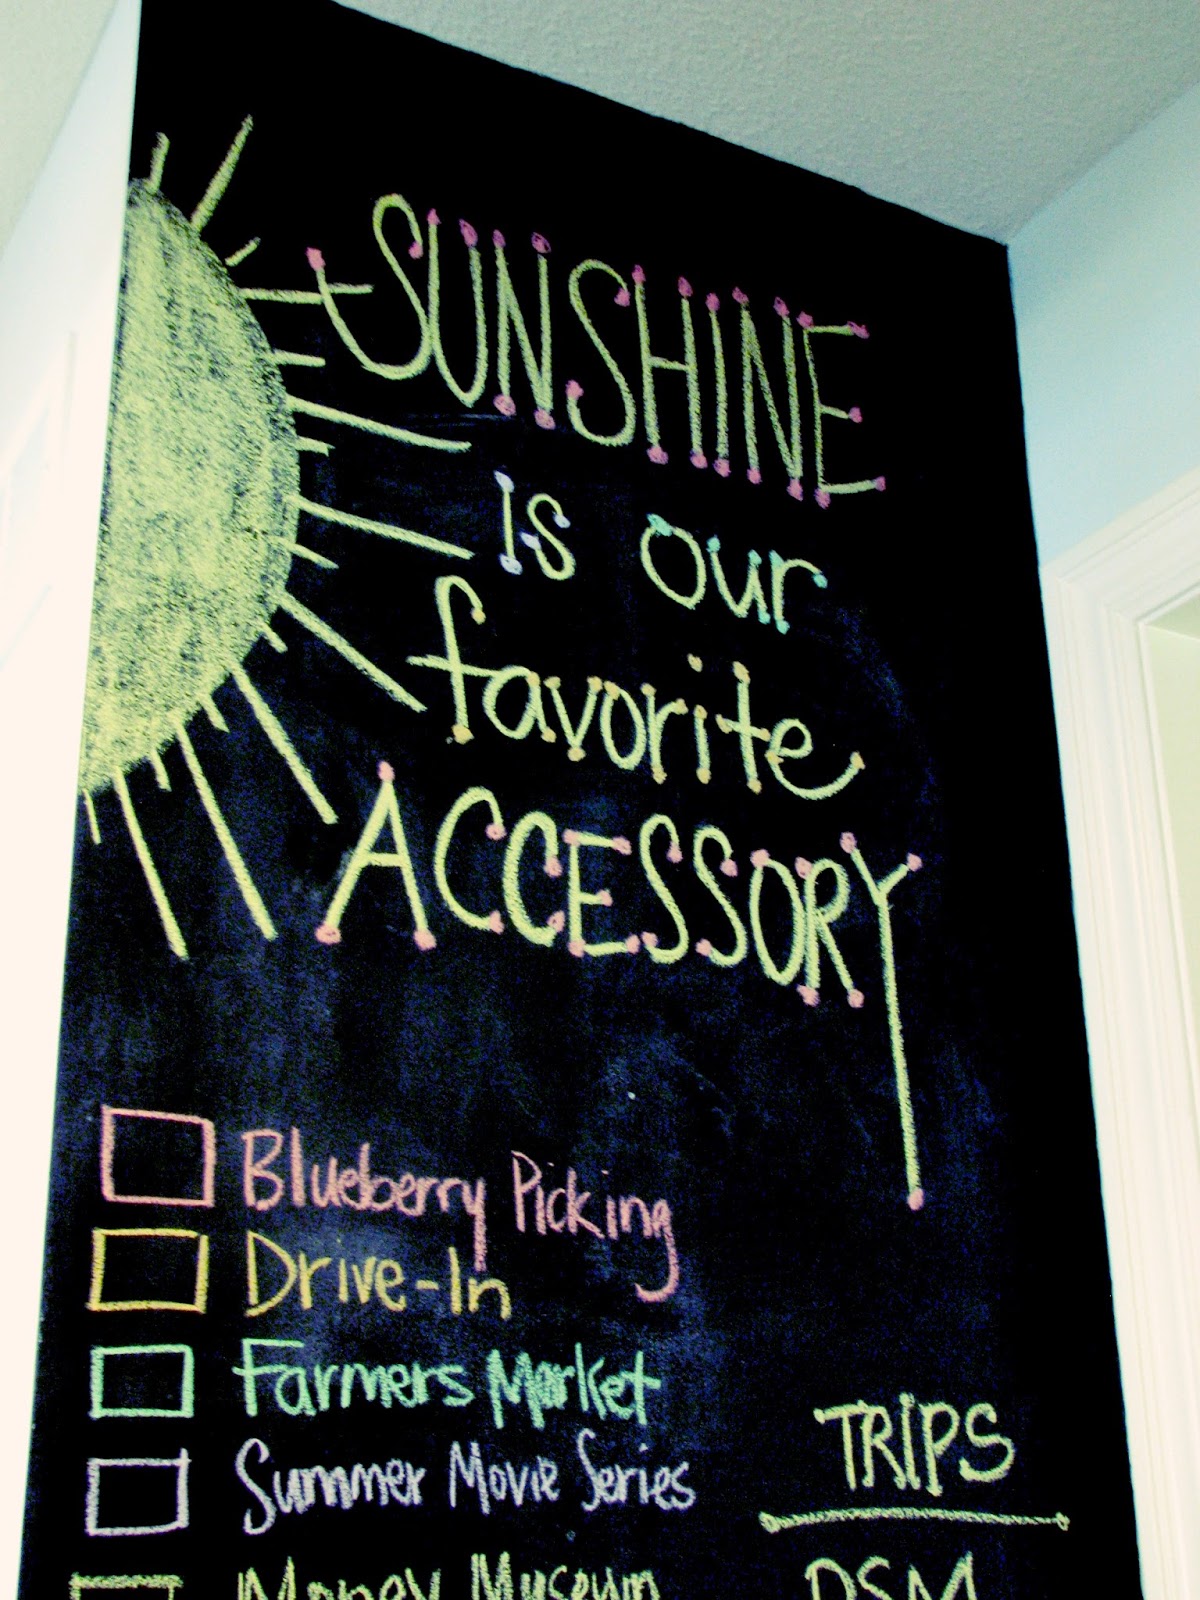 SUNSHINE
is our
favorite
ACCESSORY
Blueberry Picking
Drive-In
Farmers Market
Summer Movie Series
Money Museum
TRIPS
DSM